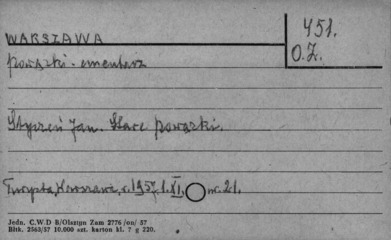 WARSZAWA
451.
O.Z.
Powązki - cmentarz
Styczeń Jan. Stare Powązki.
Turysta, Warszawa, r. 1957. t. XI. nr. 21.
Jedn. C.W.D B/Olsztyn Zam 2776/on/ 57
Bltk. 2563/57 10.000 szt. karton kl. 7 g 220.